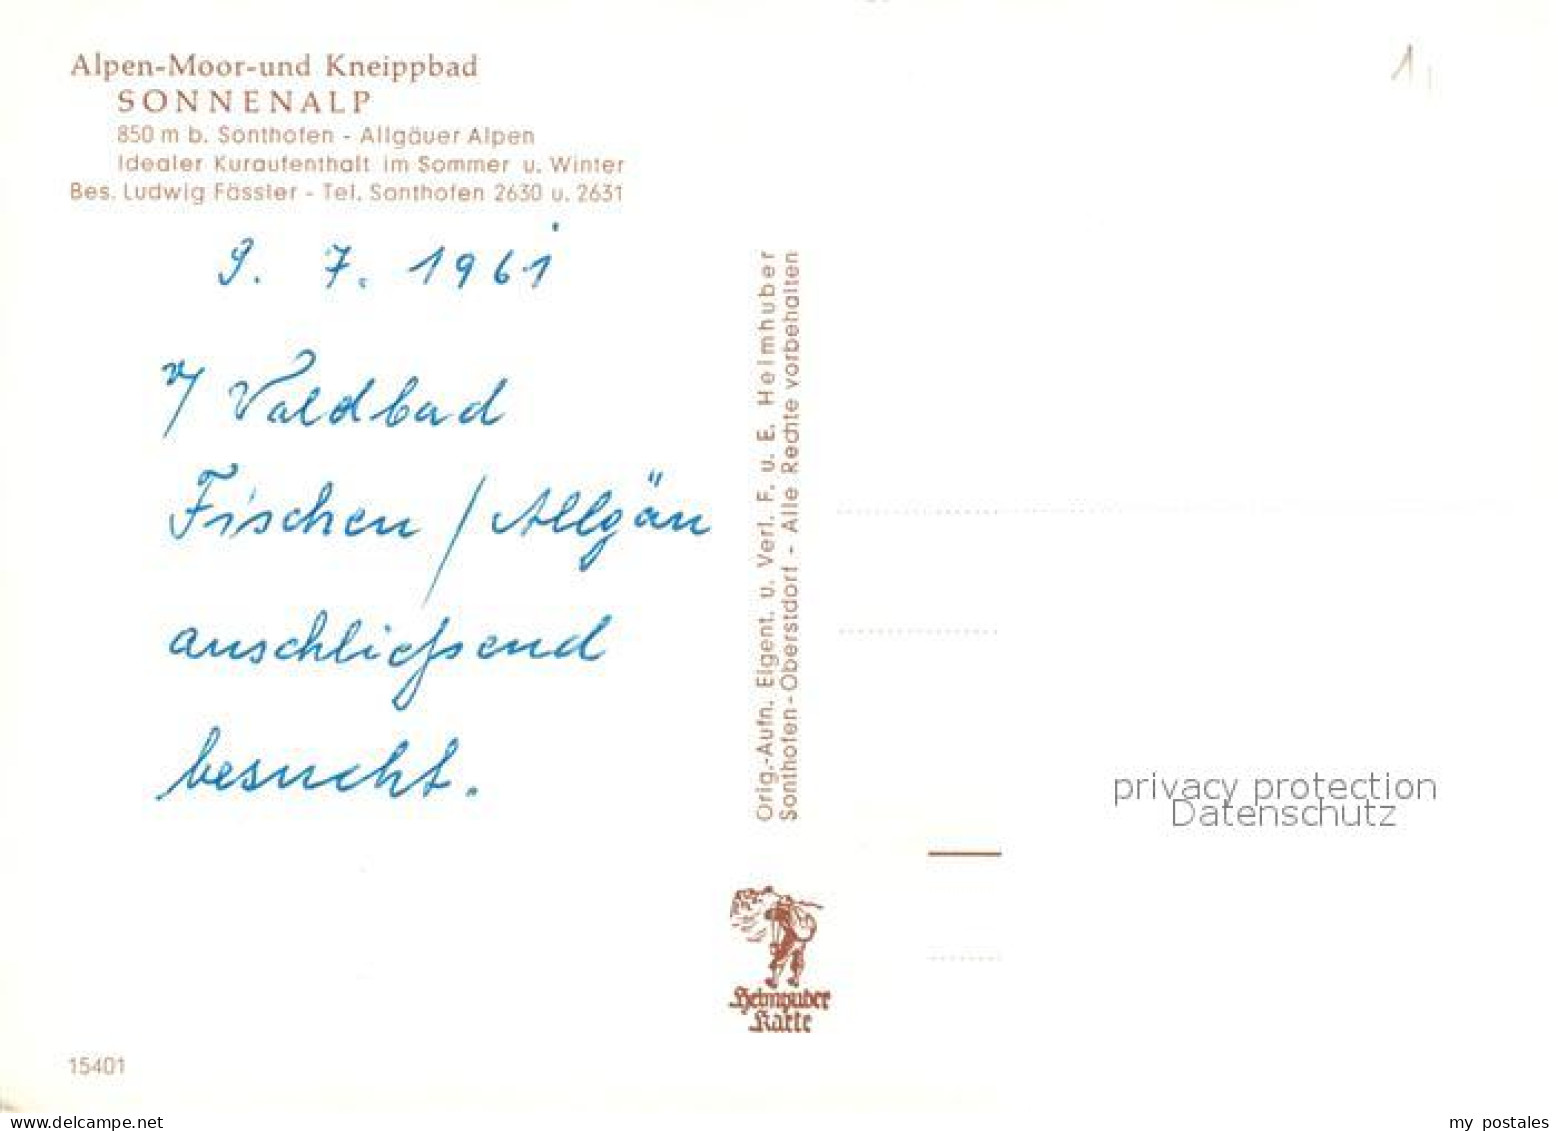 Alpen-Moor-und Kneippbad
SONNENALP
850 m b. Sonthofen - Allgäuer Alpen
Idealer Kuraufenthalt im Sommer u. Winter
Bes. Ludwig Fässler - Tel. Sonthofen 2630 u. 2631
9. 7. 1961
v/ Waldbad
Fischen / Allgäu
anschließend
besucht.
Orig.-Aufn. Eigent. u. Verl. F. u. E. Heimhuber
Sonthofen-Oberstdorf - Alle Rechte vorbehalten
1
privacy protection
Datenschutz
Heimhuber
Karte
15401
www.delcampe.net
my_postales